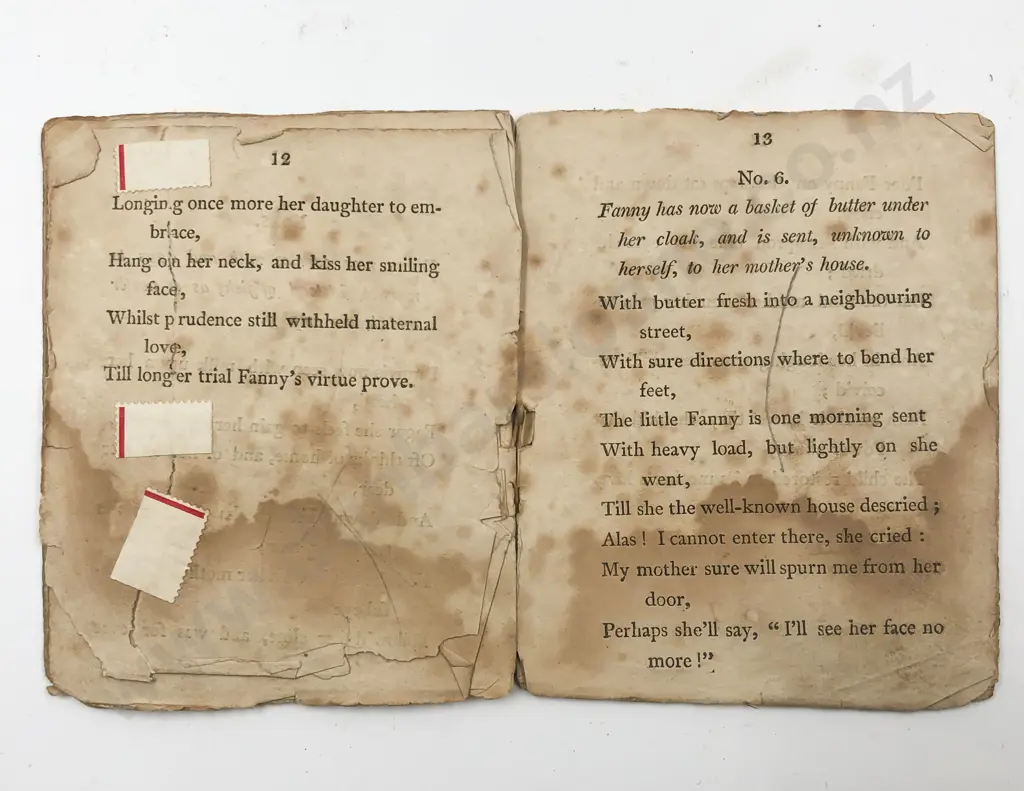 12
Longing once more her daughter to em-
brace,
Hang on her neck, and kiss her smiling
face,
Whilst prudence still withheld maternal
love,
Till longer trial Fanny's virtue prove.
13
No. 6.
Fanny has now a basket of butter under
her cloak, and is sent, unknown to
herself, to her mother's house.
With butter fresh into a neighbouring
street,
With sure directions where to bend her
feet,
The little Fanny is one morning sent
With heavy load, but lightly on she
went,
Till she the well-known house descried ;
Alas ! I cannot enter there, she cried :
My mother sure will spurn me from her
door,
Perhaps she'll say, “ I'll see her face no
more !”